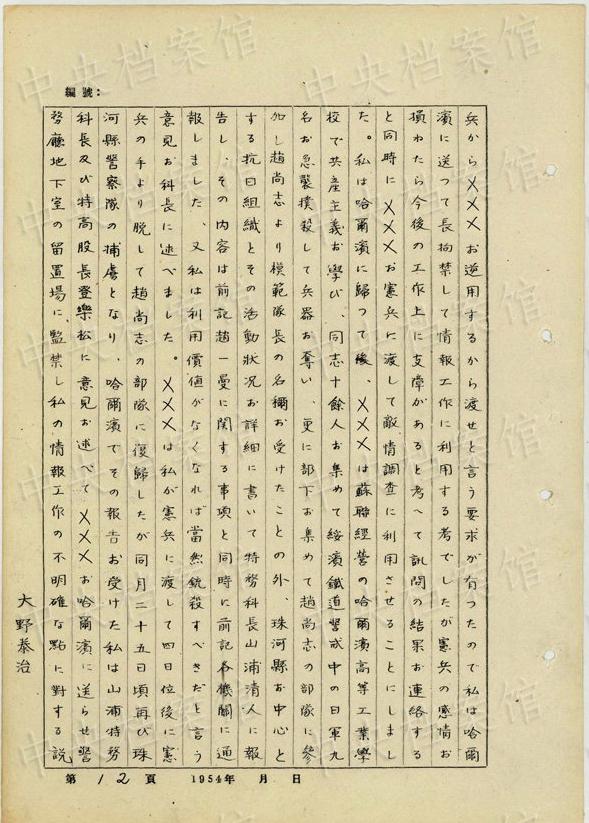 編號：
兵から×××お逆用するから渡せと言う要求が有つたので私は哈爾
濱に送つて長拘禁して情報工作に利用する考でしたが憲兵の感情お
損ねたら今後の工作上に支障があると考へて訊問の結果お連絡する
と同時に×××お憲兵に渡して敵情調査に利用させることにしまし
た。私は哈爾濱に歸つて後、×××は蘇聯經營の哈爾濱高等工業學
校で共産主義お學び、同志十餘人お集めて綏濱鐵道警戒中の日軍九
名お急襲撲殺して兵器お奪い、更に部下お集めて趙尚志の部隊に參
加し趙尚志より模範隊長の名稱お受けたことの外、珠河縣お中心と
する抗日組織とその活動狀況お詳細に書いて特務科長山浦清人に報
告し、その内容は前記趙一曼に関する事項と同時に前記各機關に通
報しました、又私は利用價値がなくなれば當然銃殺すべきだと言う
意見お科長に述べました。×××は私が憲兵に渡して四日位後に憲
兵の手より脱して趙尚志の部隊に復歸したが同月二十五日頃再び珠
河縣警察隊の捕虜となり、哈爾濱でその報告お受けた私は山浦特務
科長及び特高股長登樂松に意見お述べて×××お哈爾濱に送らせ警
務廳地下室の留置場に監禁し私の情報工作の不明確な點に対する説
大野泰治
第12頁 1954年 月 日
中央档案馆